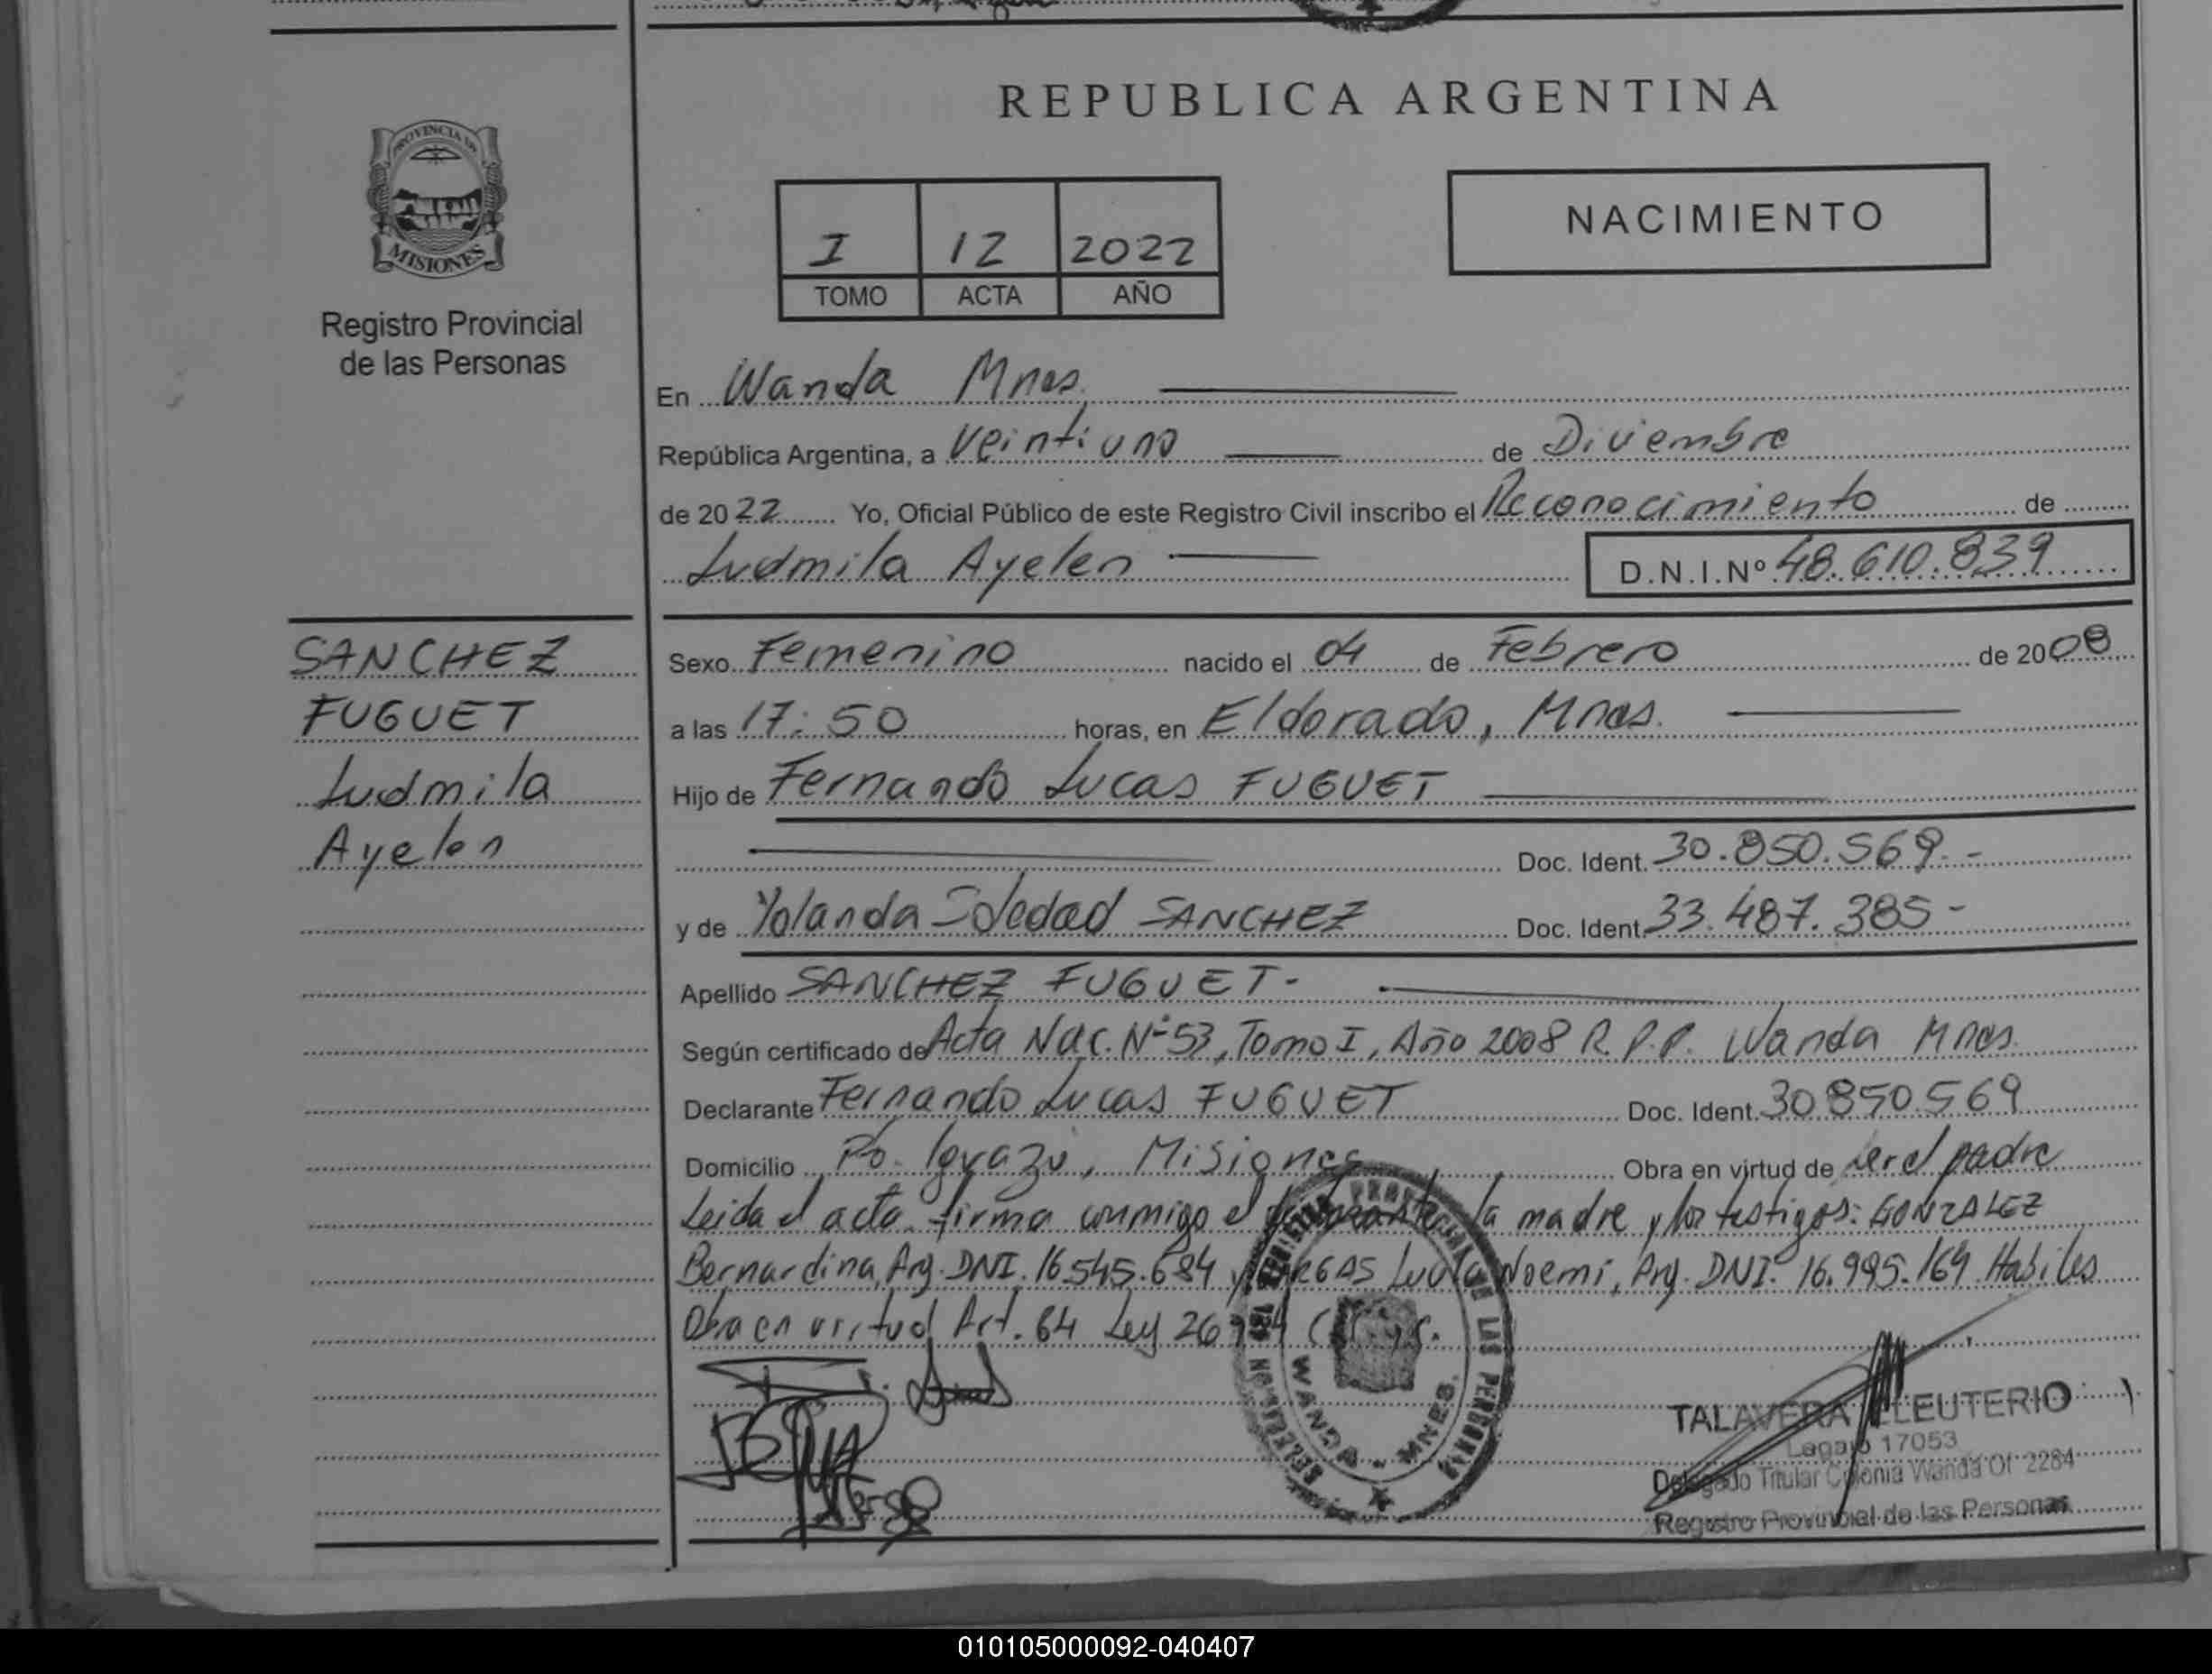 REPUBLICA ARGENTINA
PROVINCIA DE
MISIONES
Registro Provincial
de las Personas
I 12 2022
TOMO ACTA AÑO
NACIMIENTO
En Wanda Mnes.
República Argentina, a veintiuno de Diciembre
de 2022 Yo, Oficial Público de este Registro Civil inscribo el Reconocimiento de
Ludmila Ayelen D.N.I.Nº 48.610.839
SANCHEZ
FUGUET
Ludmila
Ayelen
Sexo Femenino nacido el 04 de Febrero de 2008
a las 17:50 horas, en Eldorado, Mnes.
Hijo de Fernando Lucas FUGUET
Doc. Ident. 30.850.569.-
y de Yolanda Soledad SANCHEZ Doc. Ident. 33.487.385-
Apellido SANCHEZ FUGUET.
Según certificado de Acta Nac. Nº 53, Tomo I, Año 2008 R.P.P. Wanda Mnes.
Declarante Fernando Lucas FUGUET Doc. Ident. 30.850.569
Domicilio Pto. Iguazu, Misiones Obra en virtud de ser el padre
Leida el acta firma conmigo el declarante, la madre y los testigos: GONZALEZ
Bernardina, Arg. DNI. 16.545.684 y Noemi, Arg. DNI. 16.995.169 Habiles
Obra en virtud Art. 64 Ley 26
REGISTRO PROVINCIAL DE LAS PERSONAS
WANDA - MNES.
TALAVERA ELEUTERIO
Legajo 17053
Delegado Titular Colonia Wanda Of 2284
Registro Provincial de las Personas
010105000092-040407